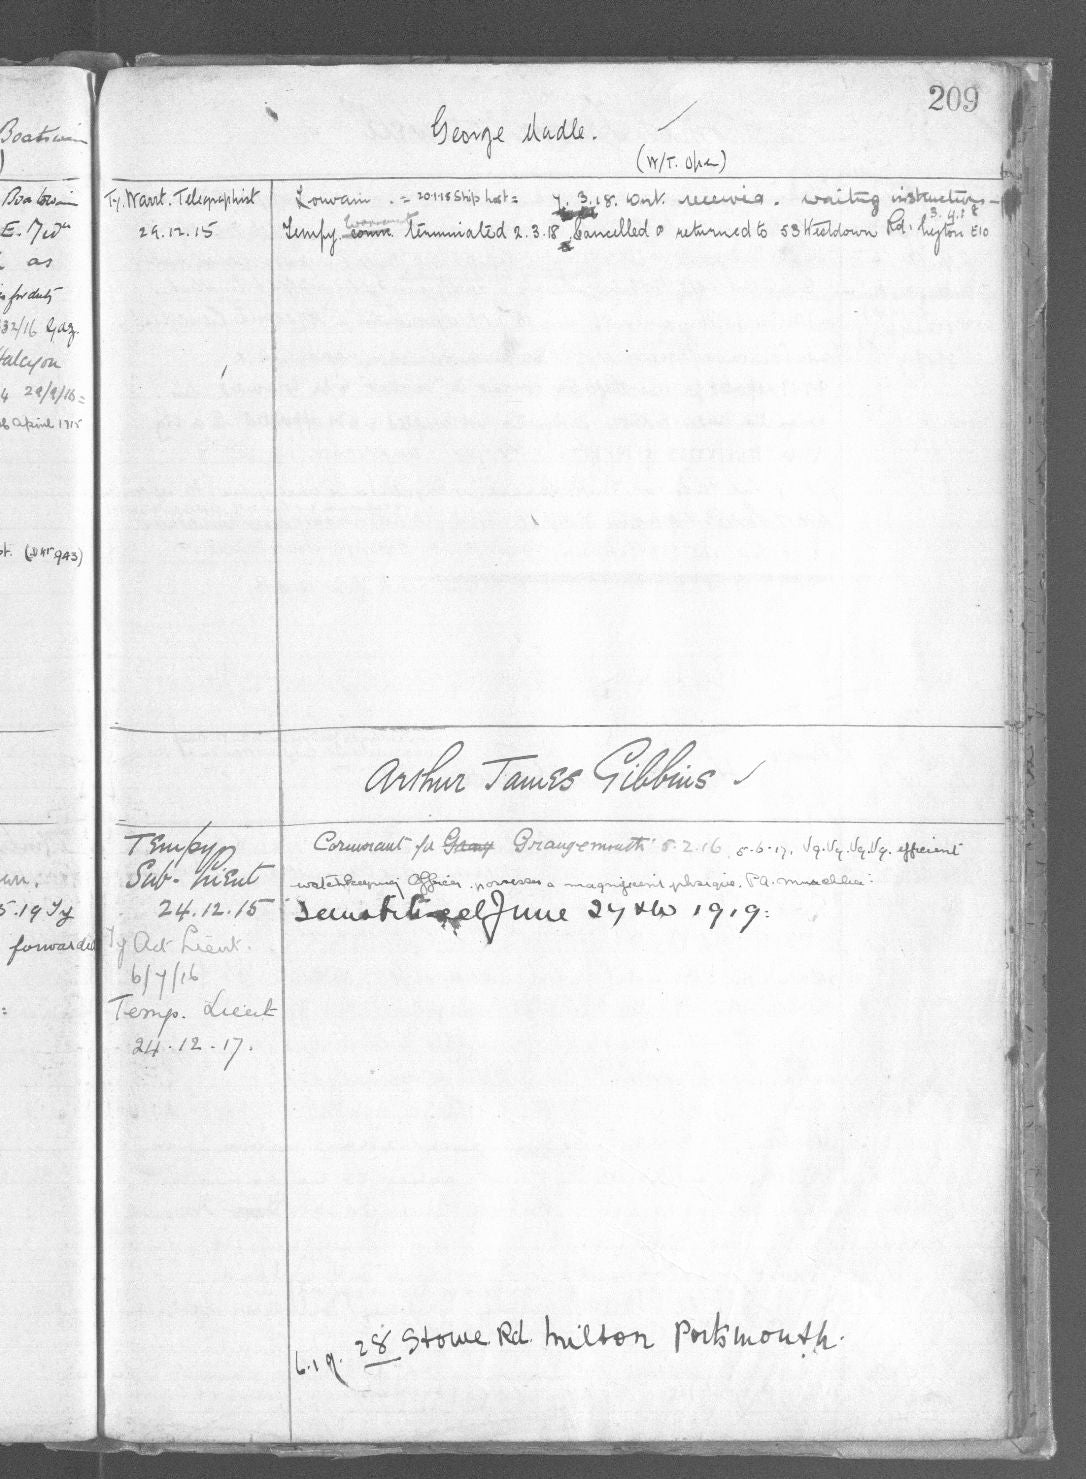 209
George Madle.
(W/T. Oper)
Boatswain
Boatswain
Ty. Warrt. Telegraphist
29.12.15
Louvain . = 20.1.18 Ship lost = 7. 3. 18. Wart. received. waiting instructions -
Tempy. Warrant terminated 2.3.18 Cancelled & returned to 53 Rd. Leyton E10
3.4.18
as
for duty
32/16 Gaz.
Halcyon
29/9/16 =
April 1918
Arthur James Gibbins
Tempy
Sub-Lieut
24.12.15
Ty Act Lieut.
6/7/16
Temp. Lieut
24.12.17.
Cormorant f/d Grangemouth 5.2.16. 5.6.17. Vg. Vg. Vg. Vg. efficient
watchkeeping Officer. possesses a magnificent physique.
Demobilized June 27th 1919:
5.19 Ty
forwarded
6.19. 28 Stowe Rd. Milton Portsmouth.